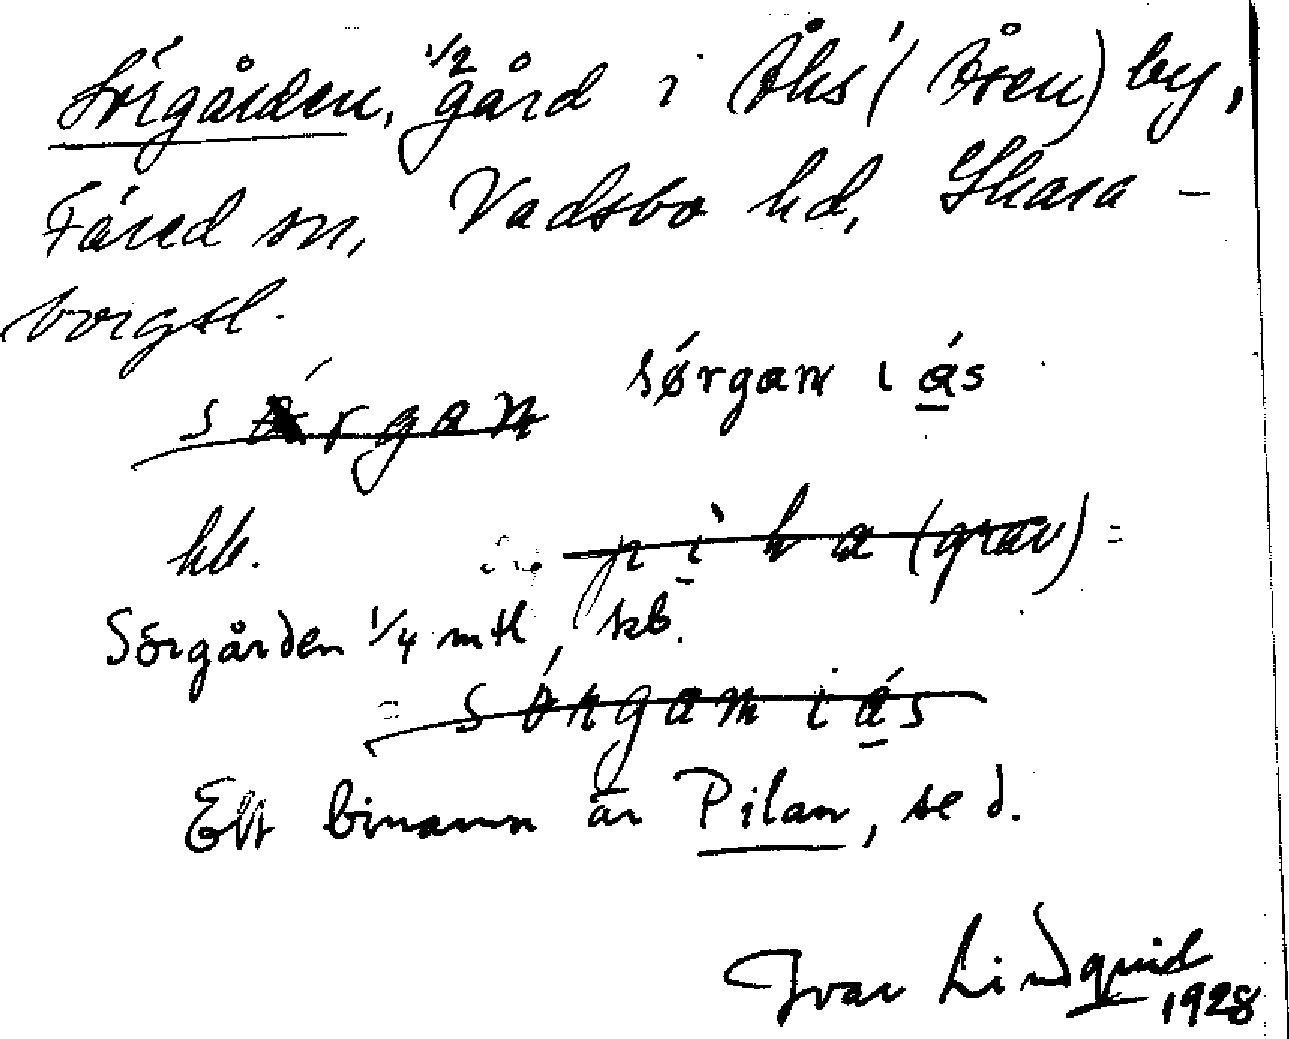 Sörgården, 1/2 gård i Åks' (Åsen) by,
Färed sn, Vadsbo hd, Skara-
borgsl.
sørgan sǿrgan i ás
hb. pila (grav)
Sörgården 1/4 mtl, skb.
sǿrgan i ás
Ett binamn är Pilan, se d.
Ivar Lindquist
1928